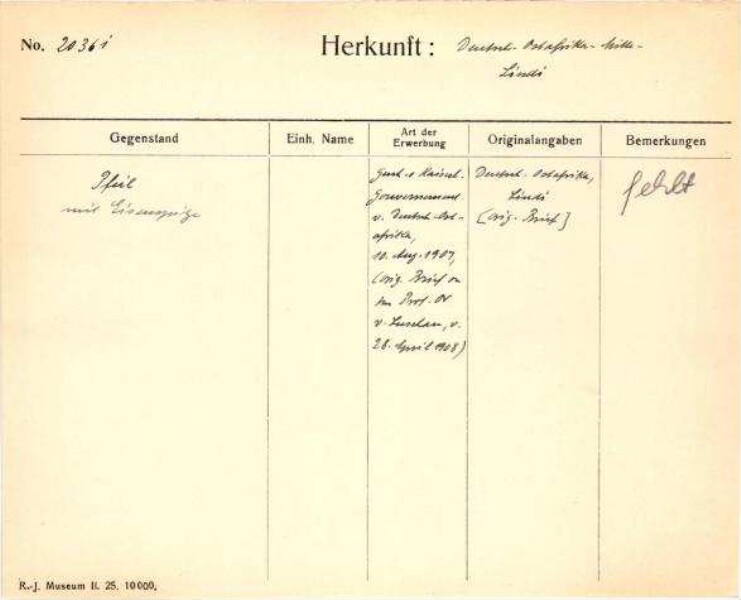 No. 2036i
Herkunft: Deutsch-Ostafrika-
Lindi
Gegenstand
Einh. Name
Art der Erwerbung
Originalangaben
Bemerkungen
Pfeil
mit Eisenspitze
Kaiserl.
Gouvernement
v. Deutsch-Ost-
afrika,
10. Aug. 1907,
(orig. Brief
Prof. Dr
v. Luschan, v.
28. April 1908)
Deutsch-Ostafrika,
Lindi
[orig. Brief]
fehlt
R.-J. Museum II. 25. 10000.